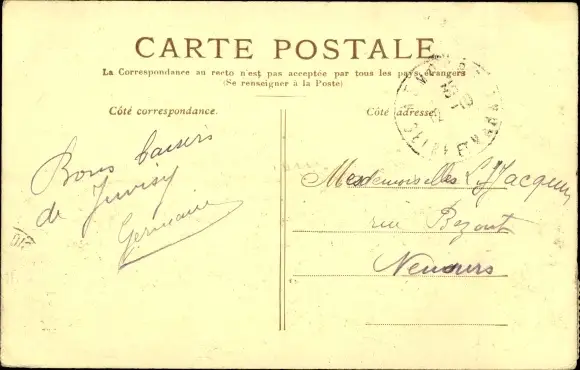 CARTE POSTALE
La Correspondance au recto n'est pas acceptée par tous les pays étrangers
(Se renseigner à la Poste)
Côté correspondance.
Côté adresse
Bons baisers
de Juvisy
Germaine
Mesdemoiselles Jacquin
rue Bezout
Nemours